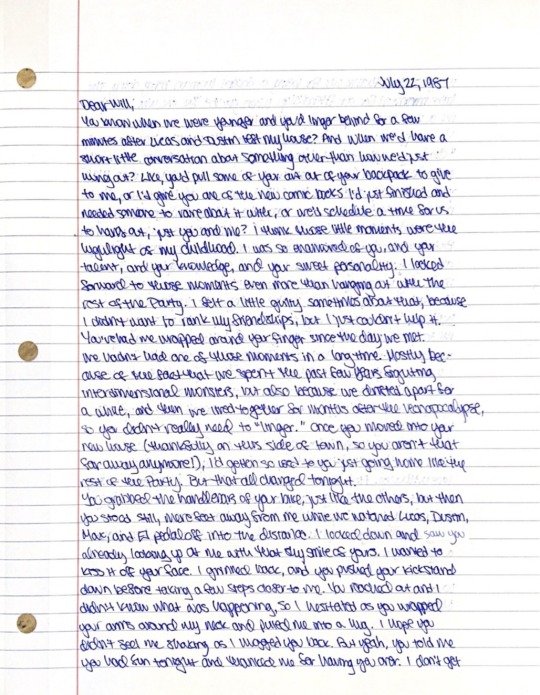 July 22, 1987
Dear Will,
You know when we were younger and you'd linger behind for a few
minutes after Lucas and Dustin left my house? And when we'd have a
short little conversation about something other than how we'd just
hung out? Like, you'd pull some of your art out of your backpack to give
to me, or I'd give you one of the new comic books I'd just finished and
needed someone to rave about it with, or we'd schedule a time for us
to hang out, just you and me? I think those little moments were the
highlight of my childhood. I was so enamored of you, and your
talent, and your knowledge, and your sweet personality. I looked
forward to those moments even more than hanging out with the
rest of the Party. I felt a little guilty sometimes about that, because
I didn't want to rank my friendships, but I just couldn't help it.
You've had me wrapped around your finger since the day we met.
We hadn't had one of those moments in a long time. Mostly bec-
ause of the fact that we spent the past few years fighting
interdimensional monsters, but also because we drifted apart for
a while, and then we lived together for months after the Vecnapocalypse,
so you didn't really need to "linger." Once you moved into your
new house (thankfully on this side of town, so you aren't that
far away anymore!), I'd gotten so used to you just going home like the
rest of the Party. But that all changed tonight.
You grabbed the handlebars of your bike, just like the others, but then
you stood still, mere feet away from me while we watched Lucas, Dustin,
Max, and El pedal off into the distance. I looked down and saw you
already looking up at me with that shy smile of yours. I wanted to
kiss it off your face. I grinned back, and you pushed your kickstand
down before taking a few steps closer to me. You reached out and I
didn't know what was happening, so I hesitated as you wrapped
your arms around my neck and pulled me into a hug. I hope you
didn't feel me shaking as I hugged you back. But yeah, you told me
you had fun tonight and thanked me for having you over. I don't get